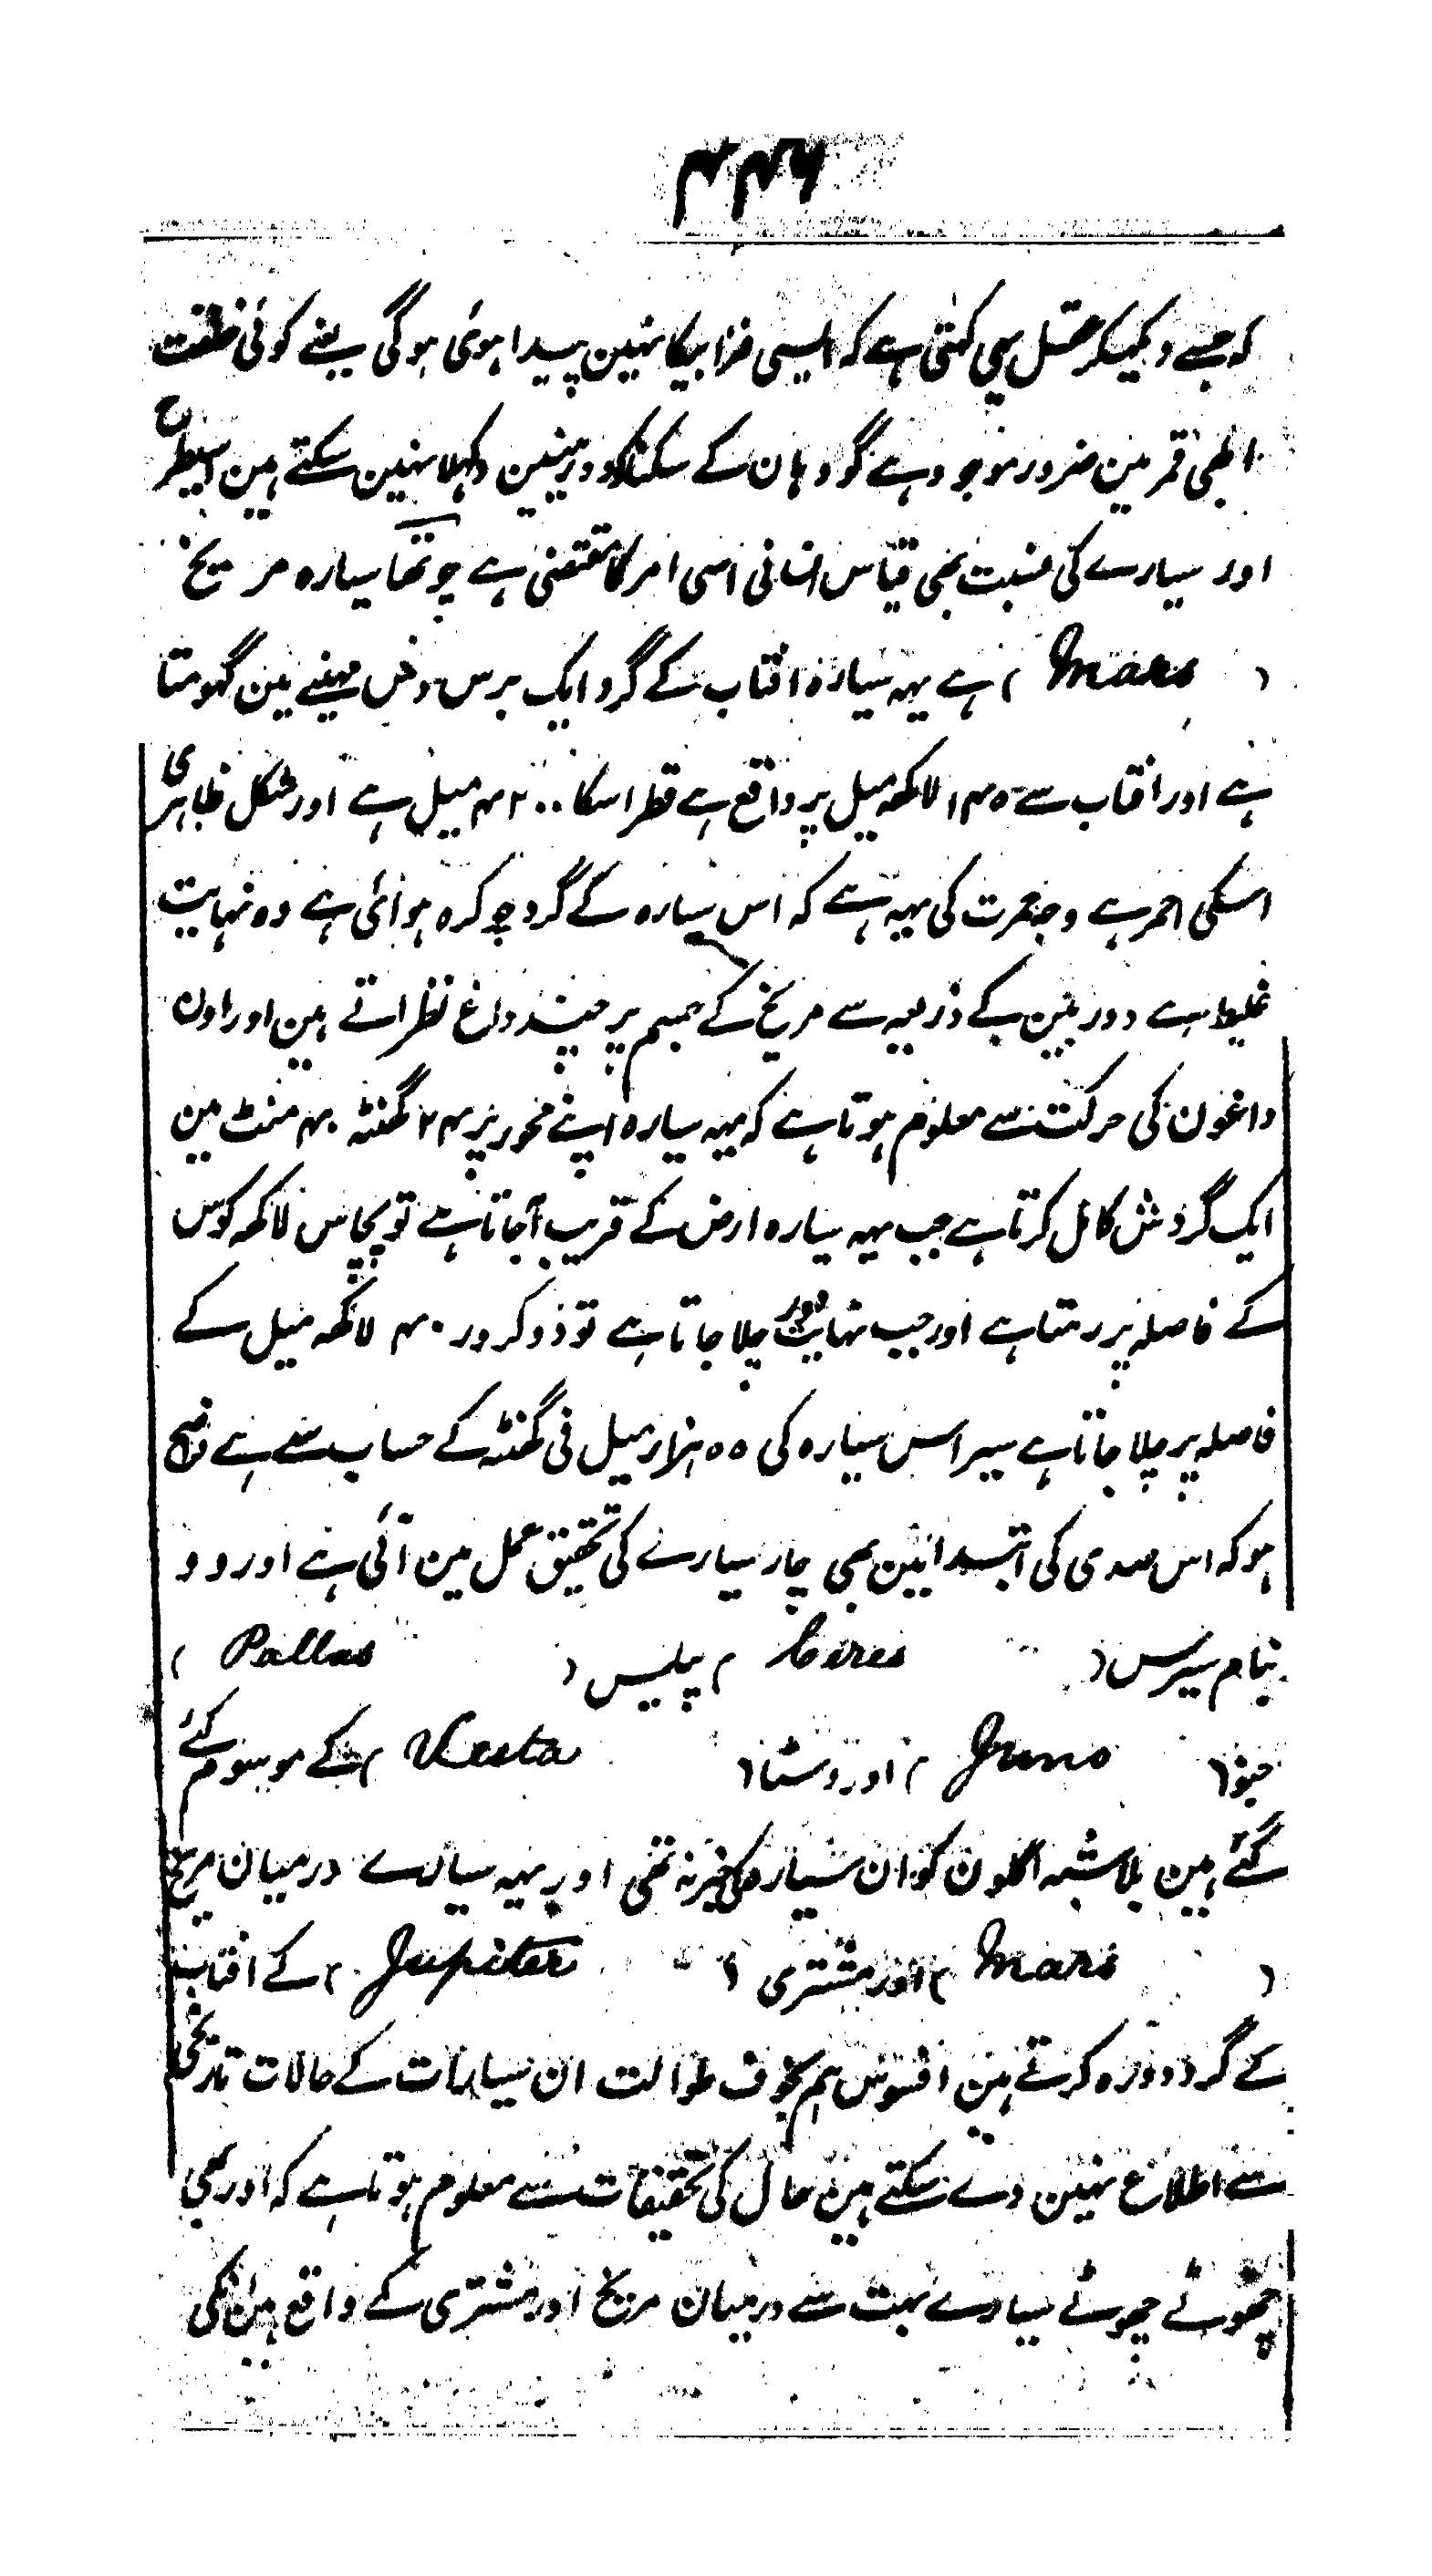 ۴۴۶
کہ جسے دیکھیکر عقل یہی کہتی ہے کہ ایسی فزا بیکا نہین پیدا ہوئی ہو گی یعنے کوئی خلقت
الٰہی قمر مین ضرور موجود ہے گو وہان کے سکنا کو دوربینین دکہلا نہین سکتے ہین اسیطرح
اور سیارے کی نسبت بھی قیاس انسانی اسی امر کا مقتضی ہے چوتھا سیارہ مریخ
( Mars ) ہے یہہ سیارہ افتاب کے گرد ایک برس دس مہینے مین گہومتا
ہے اور افتاب سے ۱۴۵۰ لاکھہ میل پر واقع ہے قطر اسکا ۴۲۰۰ میل ہے اور شکل ظاہری
اسکی احمر ہے وجہ حمرت کی یہہ ہے کہ اس سیارہ کے گرد جو کرہ ہوائی ہے وہ نہایت
غلیظ ہے دوربین کے ذریعہ سے مریخ کے جسم پر چند داغ نظر اتے ہین اور اون
داغون کی حرکت سے معلوم ہوتا ہے کہ یہہ سیارہ اپنے محور پر ۲۴ گھنٹہ ۴۰ منٹ مین
ایک گردش کامل کرتا ہے جب یہہ سیارہ ارض کے قریب آجاتا ہے تو پچاس لاکھہ کوس
کے فاصلہ پر رہتا ہے اور جب نہایت دور چلا جاتا ہے تو دو کرور ۴۰ لاکھہ میل کے
فاصلہ پر چلا جاتا ہے سیر اس سیارہ کی ۵۵ ہزار میل فی گھنٹہ کے حساب سے ہے واضح
ہو کہ اس صدی کی ابتدا مین بھی چار سیارے کی تحقیق عمل مین آئی ہے اور وو
بنام سیرس ( Ceres ) پیلیس ( Pallas )
جنو ( Juno ) اور وسٹا ( Vesta ) کے موسوم کئے
گئے ہین بلا شبہہ اگلون کو ان سیارہ کی خبر نہ تھی اور یہہ سیارے درمیان مریخ
( Mars ) اور مشتری ( Jupiter ) کے افتاب
کے گرد دورہ کرتے ہین افسوس ہم بخوف طوالت ان سیارات کے حالات تاریخی
سے اطلاع نہین دے سکتے ہین حال کی تحقیقات سے معلوم ہوتا ہے کہ اور بھی
چھوٹے چھوٹے سیارے بہت سے درمیان مریخ اور مشتری کے واقع ہین انکی